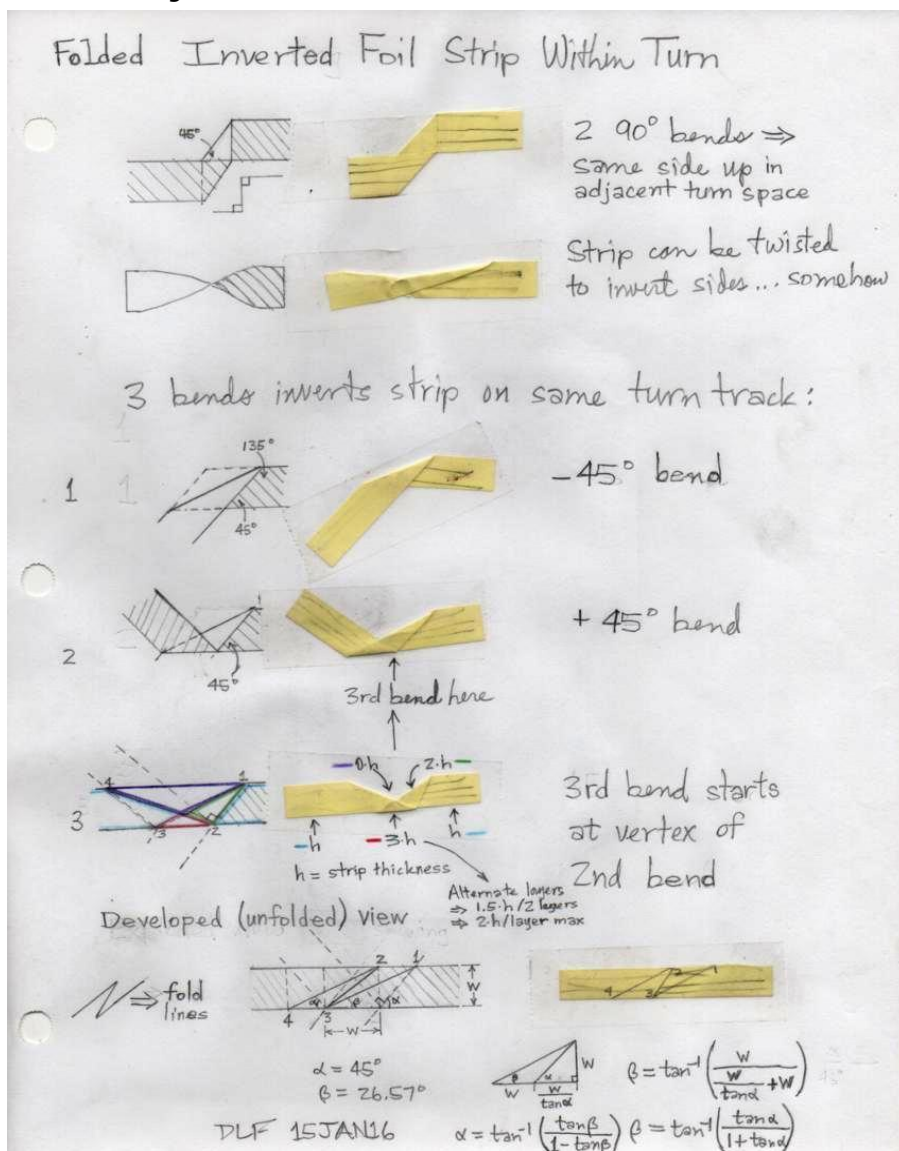 Folded Inverted Foil Strip Within Turn
45°
2 90° bends ⇒
same side up in
adjacent turn space
Strip can be twisted
to invert sides... somehow
3 bends inverts strip on same turn track:
1
135°
45°
-45° bend
2
1
45°
+45° bend
3rd bend here
3
4
1
3
2
0·h
2·h
h
3·h
h
h = strip thickness
3rd bend starts
at vertex of
2nd bend
Alternate layers
⇒ 1.5·h/2 layers
⇒ 2·h/layer max
Developed (unfolded) view
⇒ fold
lines
2
1
α
β
α
W
4
3
W
2
1
4
3
α = 45°
β = 26.57°
β
α
W
W
W/tanα
β = tan⁻¹(W/(W/tanα + W))
DLF 15JAN16
α = tan⁻¹(tanβ/(1-tanβ)) β = tan⁻¹(tanα/(1+tanα))